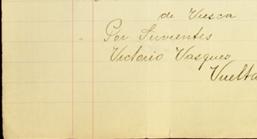 de Viesca
Por Sirvientes
Victorio Vasquez
Vuelta